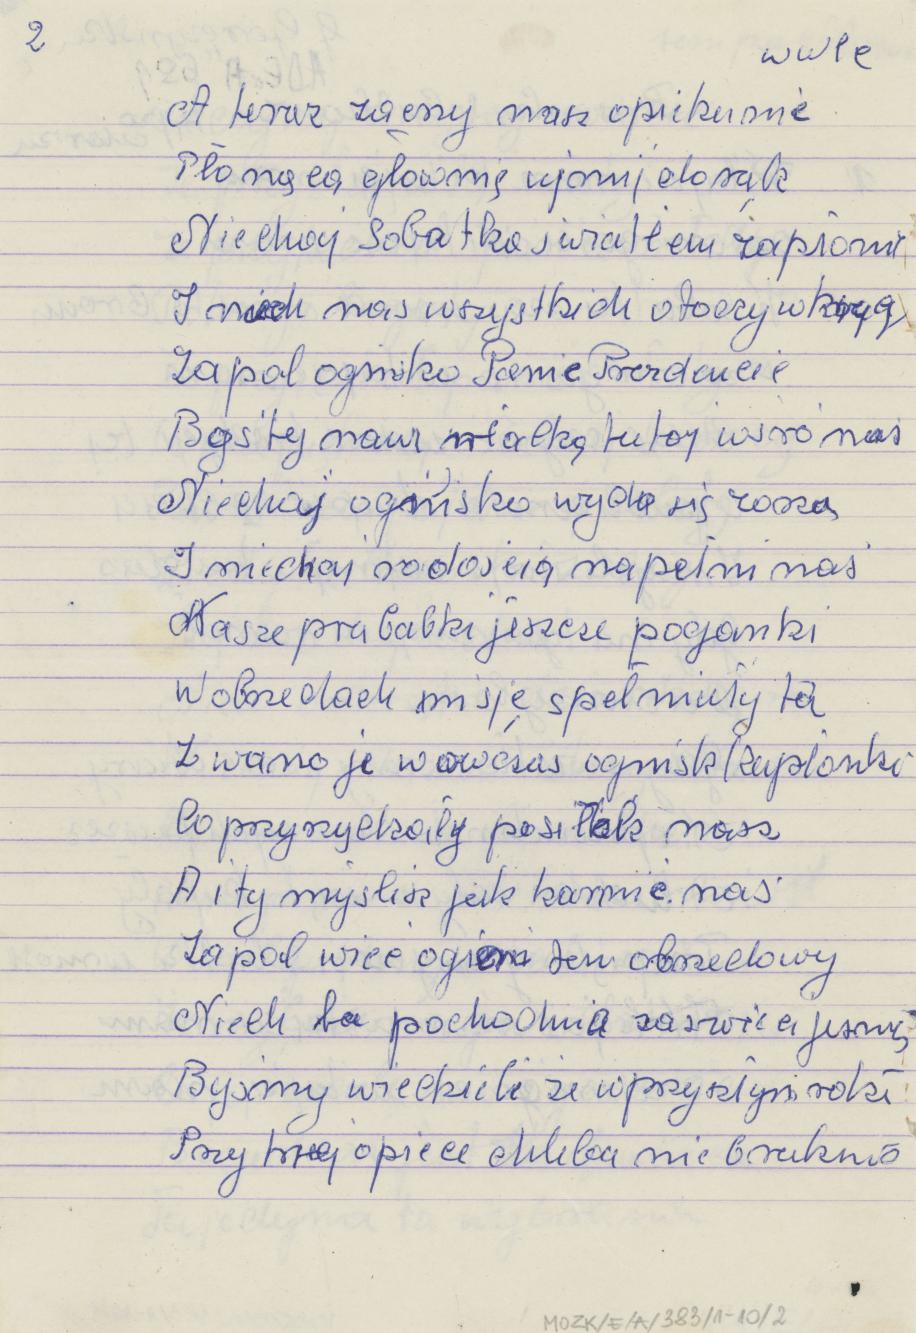 2
A teraz zacny nasz opiekunie
Płonącą głownię ujmij do rąk
Niechaj Sobatka światłem zapłonie
I niech nas wszystkich otoczy wkrąg
Zapal ognisko Panie Prezdencie
Bądź ty nam wśró nas
Niechaj ognisko wyda się rosza
I niechaj radością napełni nas
Nasze pra babki jeszcze poganki
W obrzedach misję spełniały tą
Zwano je wówczas ognisk kapłanki
Co przyrządzały posiłek nasz
A i ty myslisz jak karmić nas
Zapal wieć ogień ten obrzedowy
Niech ta pochodnia zaswieci jasną
Bysmy wiedzieli że w przysłym roku
Przy twej opiece chleba nie braknie
MOZK/E/A/383/1-10/2